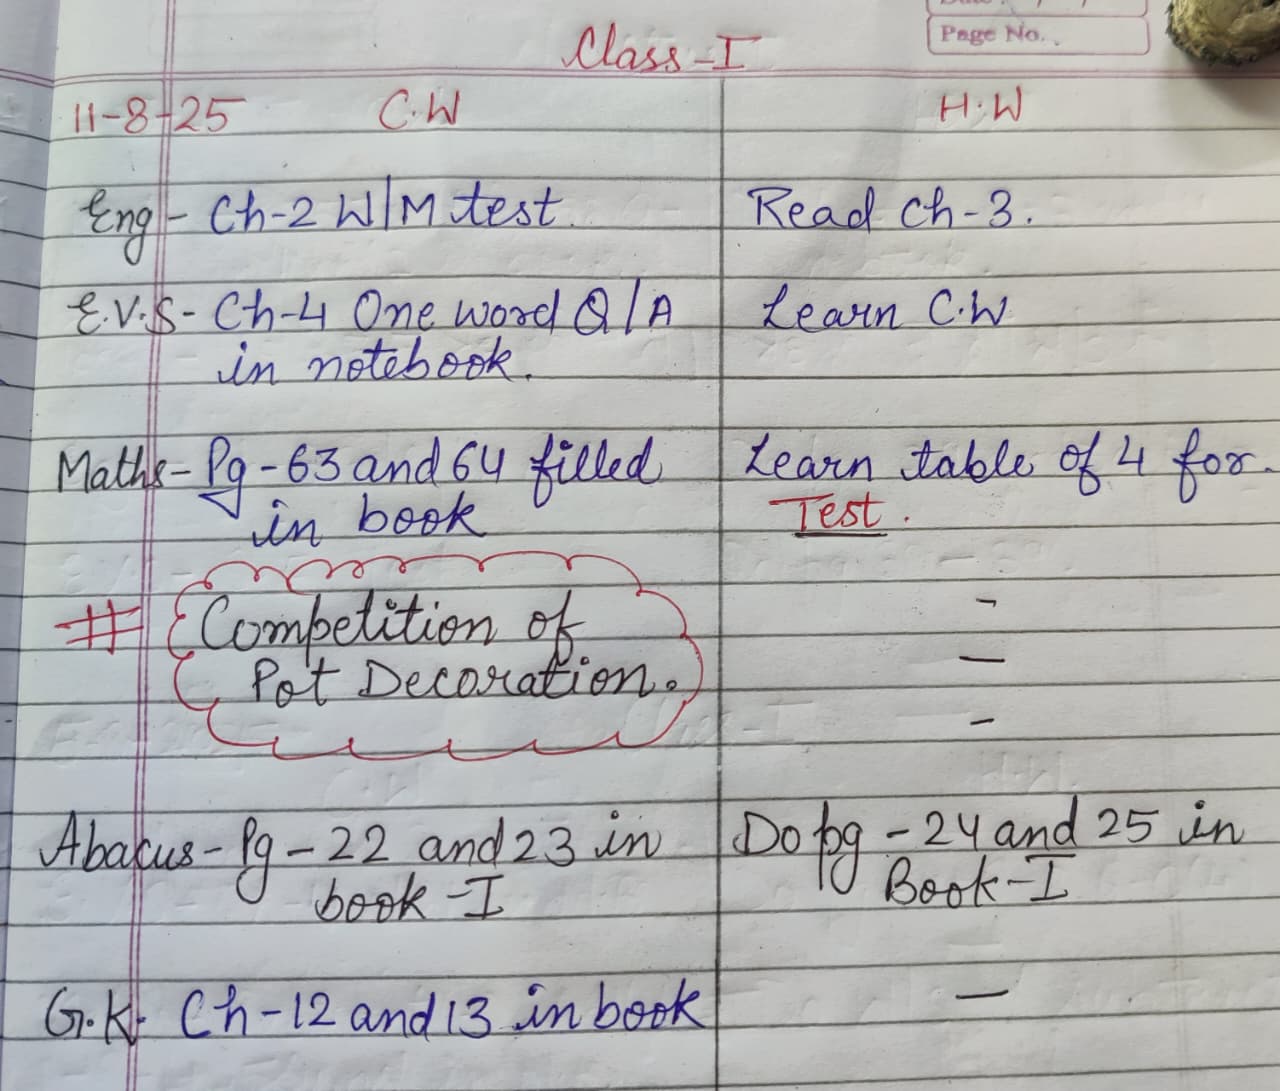 Page No.
Class-I
11-8-25 C.W H.W
Eng- Ch-2 W/M test. Read Ch-3.
E.V.S- Ch-4 One word Q/A Learn C.W
in notebook.
Maths- Pg-63 and 64 filled Learn table of 4 for
in book Test.
# Competition of -
Pot Decoration. -
-
Abacus- Pg-22 and 23 in Do pg-24 and 25 in
book-I Book-I
G.K- Ch-12 and 13 in book -